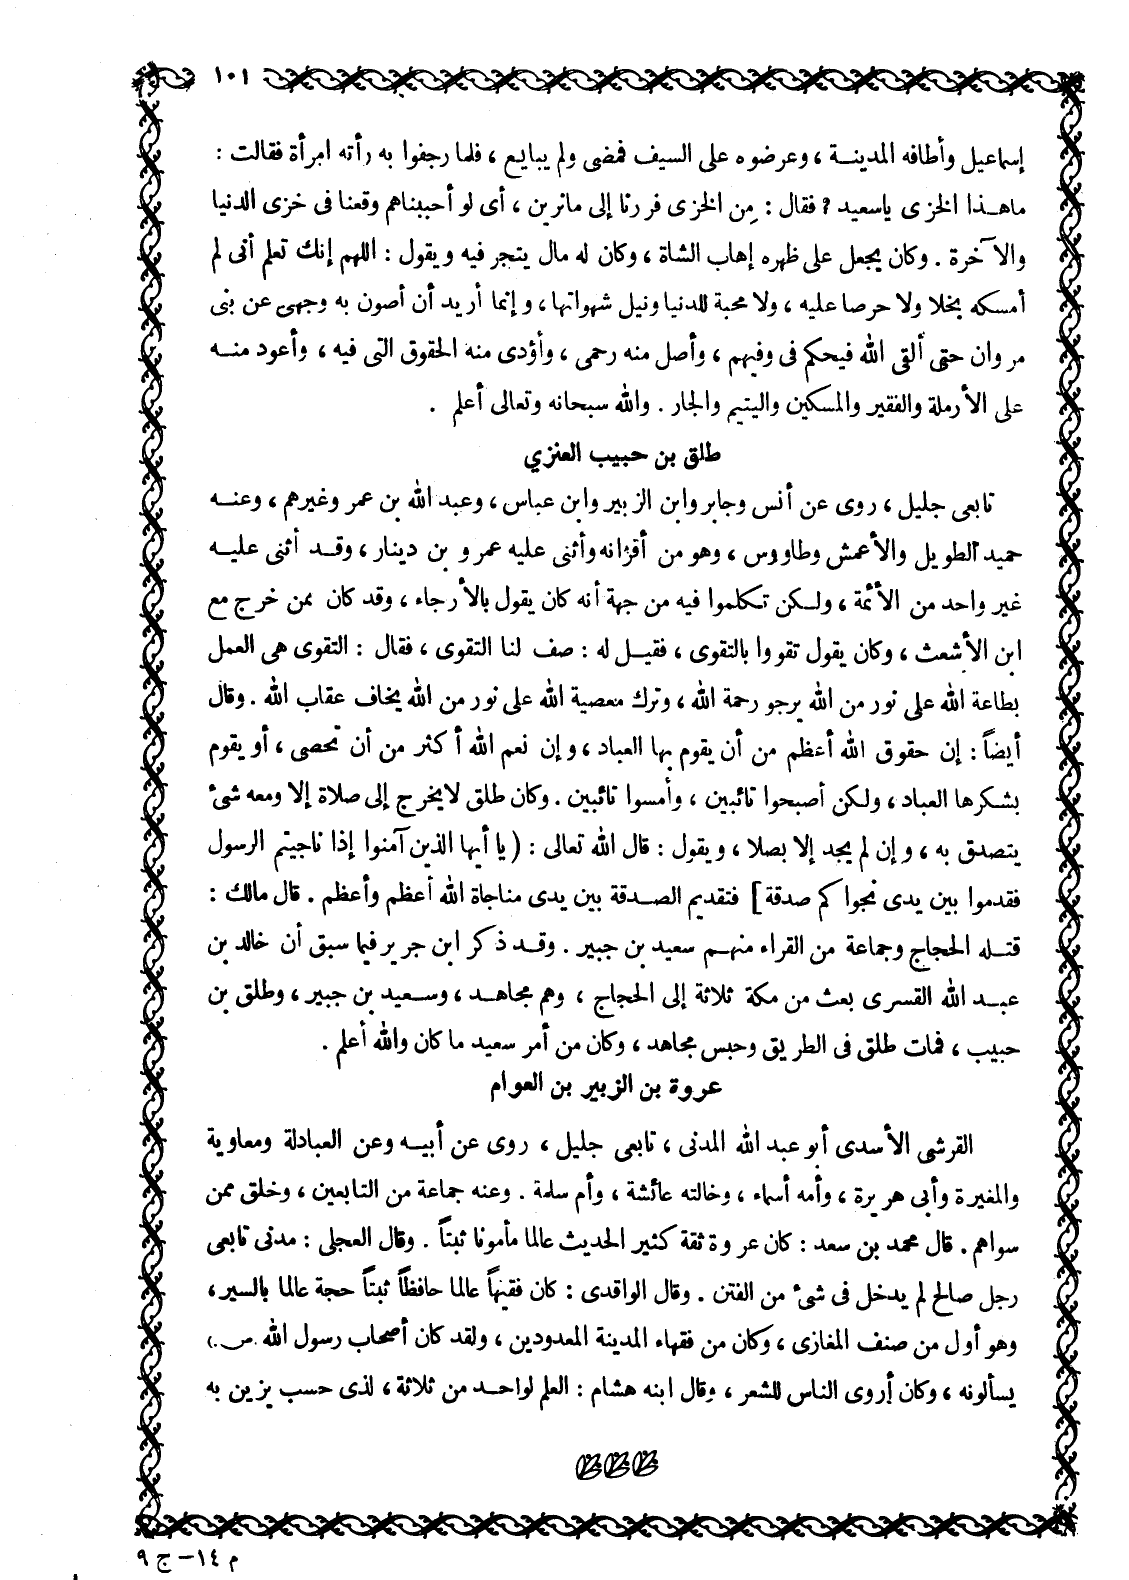 ١٠١
إسماعيل وأطافه المدينة ، وعرضوه على السيف فمضى ولم يبايع ، فلما رجفوا به رأته امرأة فقالت :
ماهذا الخزى ياسعيد ? فقال : من الخزى فررنا إلى ماترين ، أى لو أحببناهم وقعنا فى خزى الدنيا
والآخرة . وكان يجعل على ظهره إهاب الشاة ، وكان له مال يتجر فيه ويقول : اللهم إنك تعلم أنى لم
أمسكه بخلا ولا حرصا عليه ، ولا محبة للدنيا ونيل شهواتها ، وإنما أريد أن أصون به وجهى عن بنى
مروان حتى ألقى الله فيحكم فى وفيهم ، وأصل منه رحمى ، وأؤدى منه الحقوق التى فيه ، وأعود منه
على الأرملة والفقير والمسكين واليتيم والجار . والله سبحانه وتعالى أعلم .
طلق بن حبيب العنزي
تابعى جليل ، روى عن أنس وجابر وابن الزبير وابن عباس ، وعبد الله بن عمر وغيرهم ، وعنه
حميد الطويل والأعمش وطاووس ، وهو من أقرانه وأثنى عليه عمرو بن دينار ، وقد أثنى عليه
غير واحد من الأئمة ، ولكن تكلموا فيه من جهة أنه كان يقول بالأرجاء ، وقد كان ممن خرج مع
ابن الأشعث ، وكان يقول تقووا بالتقوى ، فقيل له : صف لنا التقوى ، فقال : التقوى هى العمل
بطاعة الله على نور من الله يرجو رحمة الله ، وترك معصية الله على نور من الله يخاف عقاب الله . وقال
أيضاً : إن حقوق الله أعظم من أن يقوم بها العباد ، وإن نعم الله أكثر من أن تحصى ، أو يقوم
بشكرها العباد ، ولكن أصبحوا تائبين ، وأمسوا تائبين . وكان طلق لايخرج إلى صلاة إلا ومعه شئ
يتصدق به ، وإن لم يجد إلا بصلا ، ويقول : قال الله تعالى : ( يا أيها الذين آمنوا إذا ناجيتم الرسول
فقدموا بين يدى نجواكم صدقة ] فتقديم الصدقة بين يدى مناجاة الله أعظم وأعظم . قال مالك :
قتله الحجاج وجماعة من القراء منهم سعيد بن جبير . وقد ذكر ابن جرير فيما سبق أن خالد بن
عبد الله القسرى بعث من مكة ثلاثة إلى الحجاج ، وهم مجاهد ، وسعيد بن جبير ، وطلق بن
حبيب ، فمات طلق فى الطريق وحبس مجاهد ، وكان من أمر سعيد ما كان والله أعلم .
عروة بن الزبير بن العوام
القرشى الأسدى أبو عبد الله المدنى ، تابعى جليل ، روى عن أبيه وعن العبادلة ومعاوية
والمغيرة وأبى هريرة ، وأمه أسماء ، وخالته عائشة ، وأم سلمة . وعنه جماعة من التابعين ، وخلق ممن
سواهم . قال محمد بن سعد : كان عروة ثقة كثير الحديث عالما مأمونا ثبتاً . وقال العجلى : مدنى تابعى
رجل صالح لم يدخل فى شئ من الفتن . وقال الواقدى : كان فقيهاً عالما حافظاً ثبتاً حجة عالما بالسير ،
وهو أول من صنف المغازى ، وكان من فقهاء المدينة المعدودين ، ولقد كان أصحاب رسول الله (ص)
يسألونه ، وكان أروى الناس للشعر ، وقال ابنه هشام : العلم لواحد من ثلاثة ، لذى حسب يزين به
م ١٤ – ج ٩